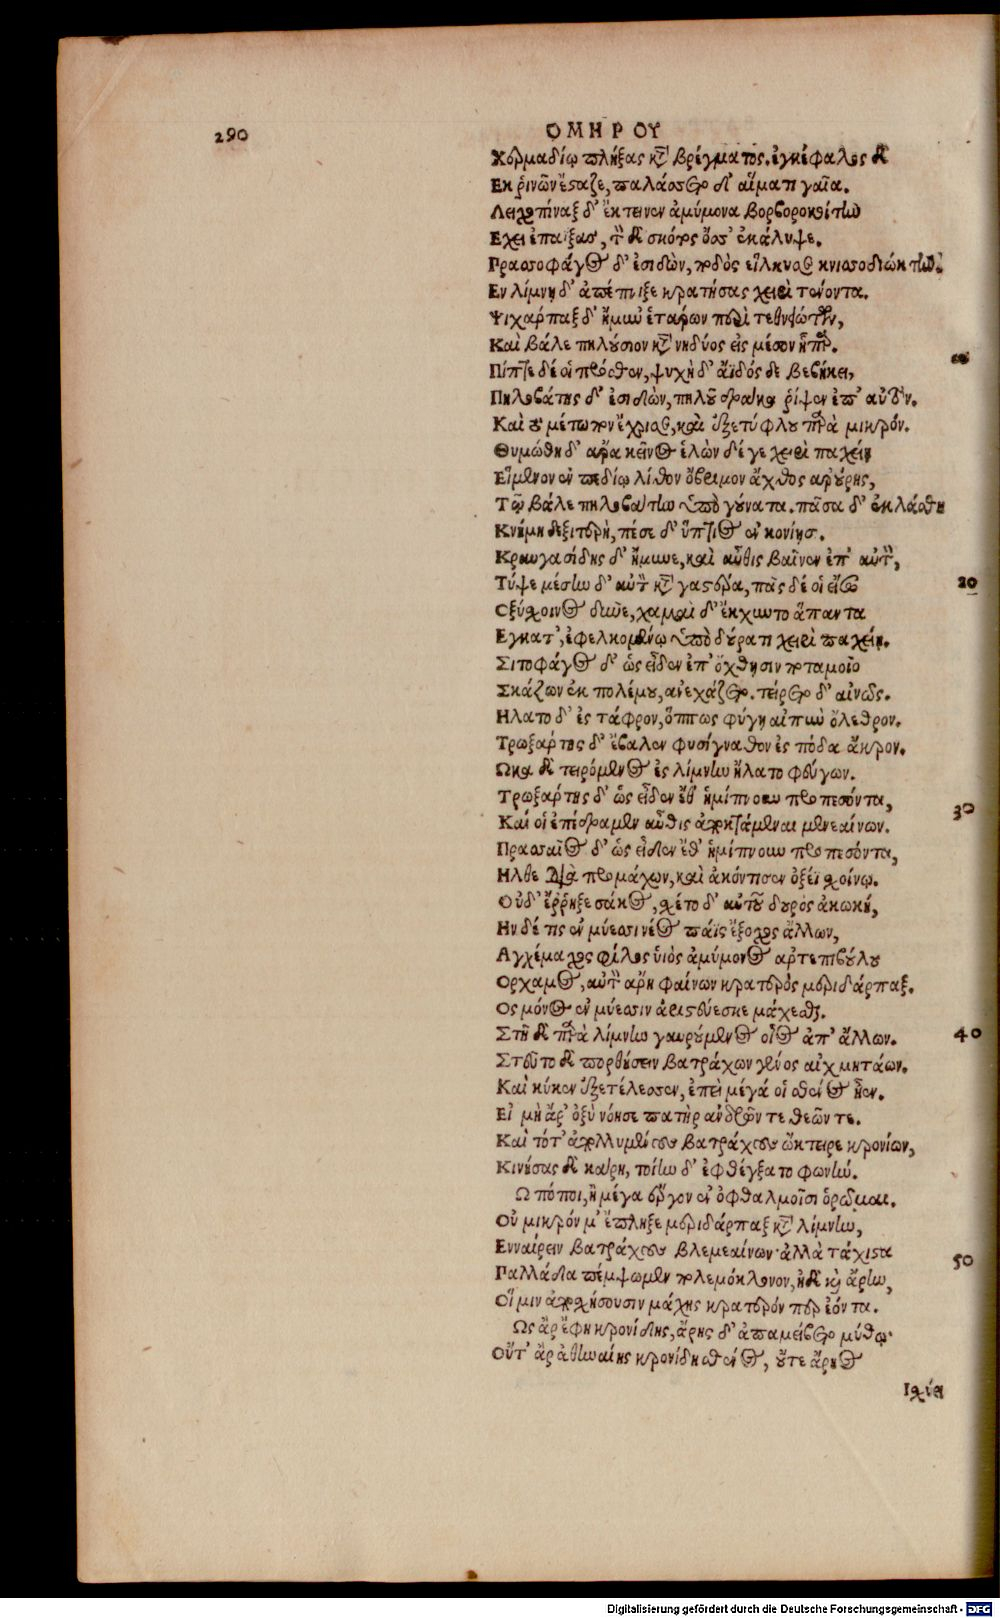 290
ΟΜΗΡΟΥ
Χερμαδίῳ πλήξας κτ̀ βρέγματος. ἐγκέφαλος δὲ
Εκ ῥινῶν ἔσταζε, παλάσσετο δ' αἵματι γαῖα.
Λειχοπίναξ δ' ἔκτεινεν ἀμύμονα βορβοροκοίτην
Εχει ἐπαΐξας, τὸν δὲ σκότος ὄσσ' ἐκάλυψε.
Πρασσοφάγος δ' ἐσιδὼν, ποδὸς εἵλκυσε κνισσοδιώκτην.
Εν λίμνῃ δ' ἀπέπνιξε κρατήσας χειρὶ τένοντα.
Ψιχάρπαξ δ' ἤμυν' ἑτάρων περὶ τεθνηώτων,
Καὶ βάλε πηλούσιον κτ̀ νηδύος εἰς μέσον ἧπαρ.
Πίπτε δέ οἱ πρόσθεν, ψυχὴ δ' ἄϊδός δε βεβήκει,
Πηλοβάτης δ' ἐσιδὼν, πηλοῦ δράκα ῥίψεν ἐπ' αὐτόν.
Καὶ τὸ μέτωπον ἔχρισε, καὶ ἐξετύφλου παρὰ μικρόν.
Θυμώθη δ' ἄρα κεῖνος ἑλὼν δέ γε χειρὶ παχείῃ
Κείμενον ἐν πεδίῳ λίθον ὄβριμον ἄχθος ἀρούρης,
Τῷ βάλε πηλοβάτην ὑπὸ γούνατα. πᾶσα δ' ἐκλάσθη
Κνήμη δεξιτερὴ, πέσε δ' ὕπτιος ἐν κονίῃσι.
Κραυγασίδης δ' ἤμυνε, καὶ αὖθις βαῖνεν ἐπ' αὐτὸν,
Τύψε μέσην δ' αὐτὸν κτ̀ γαστέρα, πᾶς δέ οἱ εἴσω
Οξύσχοινος δῦνε, χαμαὶ δ' ἔκχυντο ἅπαντα
Εγκατ', ἐφελκομένῳ ὑπὸ δούρατι χειρὶ παχείῃ.
Σιτοφάγος δ' ὡς εἶδεν ἐπ' ὄχθησιν ποταμοῖο
Σκάζων ἐκ πολέμου, ἀνεχάζετο. τείρετο δ' αἰνῶς.
Ηλατο δ' ἐς τάφρον, ὅππως φύγῃ αἰπὺν ὄλεθρον.
Τρωξάρτης δ' ἔβαλεν φυσίγναθον ἐς πόδα ἄκρον.
Ωκα δὲ τειρόμενος ἐς λίμνην ἥλατο φεύγων.
Τρωξάρτης δ' ὡς εἶδεν ἔθ' ἡμίπνοον προπεσόντα,
Καί οἱ ἐπέδραμεν αὖθις ἀποκτάμεναι μενεαίνων.
Πρασσαῖος δ' ὡς εἶδεν ἔθ' ἡμίπνοον προπεσόντα,
Ηλθε διὰ προμάχων, καὶ ἀκόντισεν ὀξέϊ σχοίνῳ.
Οὐδ' ἔῤῥηξε σάκος, σχέτο δ' αὐτοῦ δουρὸς ἀκωκή,
Ην δέ τις ἐν μύεσσι νέος παῖς ἔξοχος ἄλλων,
Αγχέμαχος φίλος ὑιὸς ἀμύμονος ἀρτεπιβούλου
Ορχαμος, αὐτὸν ἄρη φαίνων κρατερὸς μεριδάρπαξ.
Ος μόνος ἐν μύεσσιν ἀριστεύεσκε μάχεσθαι.
Στῆ δὲ παρὰ λίμνην γαυρούμενος οἶος ἀπ' ἄλλων.
Στεῦτο δὲ πορθήσειν βατράχων γένος αἰχμητάων.
Καὶ κύκεν ἐξετέλεσσεν, ἐπεὶ μέγά οἱ σθένος ἦεν.
Εἰ μὴ ἄρ' ὀξὺ νόησε πατὴρ ἀνδρῶν τε θεῶν τε.
Καὶ τότ' ἀπολλυμένους βατράχους ᾤκτειρε κρονίων,
Κινήσας δὲ κάρη, τοίην δ' ἐφθέγξατο φωνήν.
Ω πόποι, ἦ μέγα ἔργον ἐν ὀφθαλμοῖσι ὁρῶμαι.
Οὐ μικρόν μ' ἔπληξε μεριδάρπαξ κτ̀ λίμνην,
Ενναίρειν βατράχους βλεμεαίνων· ἀλλὰ τάχιστα
Παλλάδα πέμψωμεν πολεμόκλονον, ἠδὲ καὶ ἄρην,
Οἵ μιν ἀποσχήσουσιν μάχης κρατερόν περ ἐόντα.
Ως ἄρ' ἔφη κρονίδης, ἄρης δ' ἀπαμείβετο μύθῳ·
Οὔτ' ἄρ' ἀθηναίης κρονίδη σθένος, οὔτε ἄρηος
20
30
40
50
Ισχύει
Digitalisierung gefördert durch die Deutsche Forschungsgemeinschaft - DFG